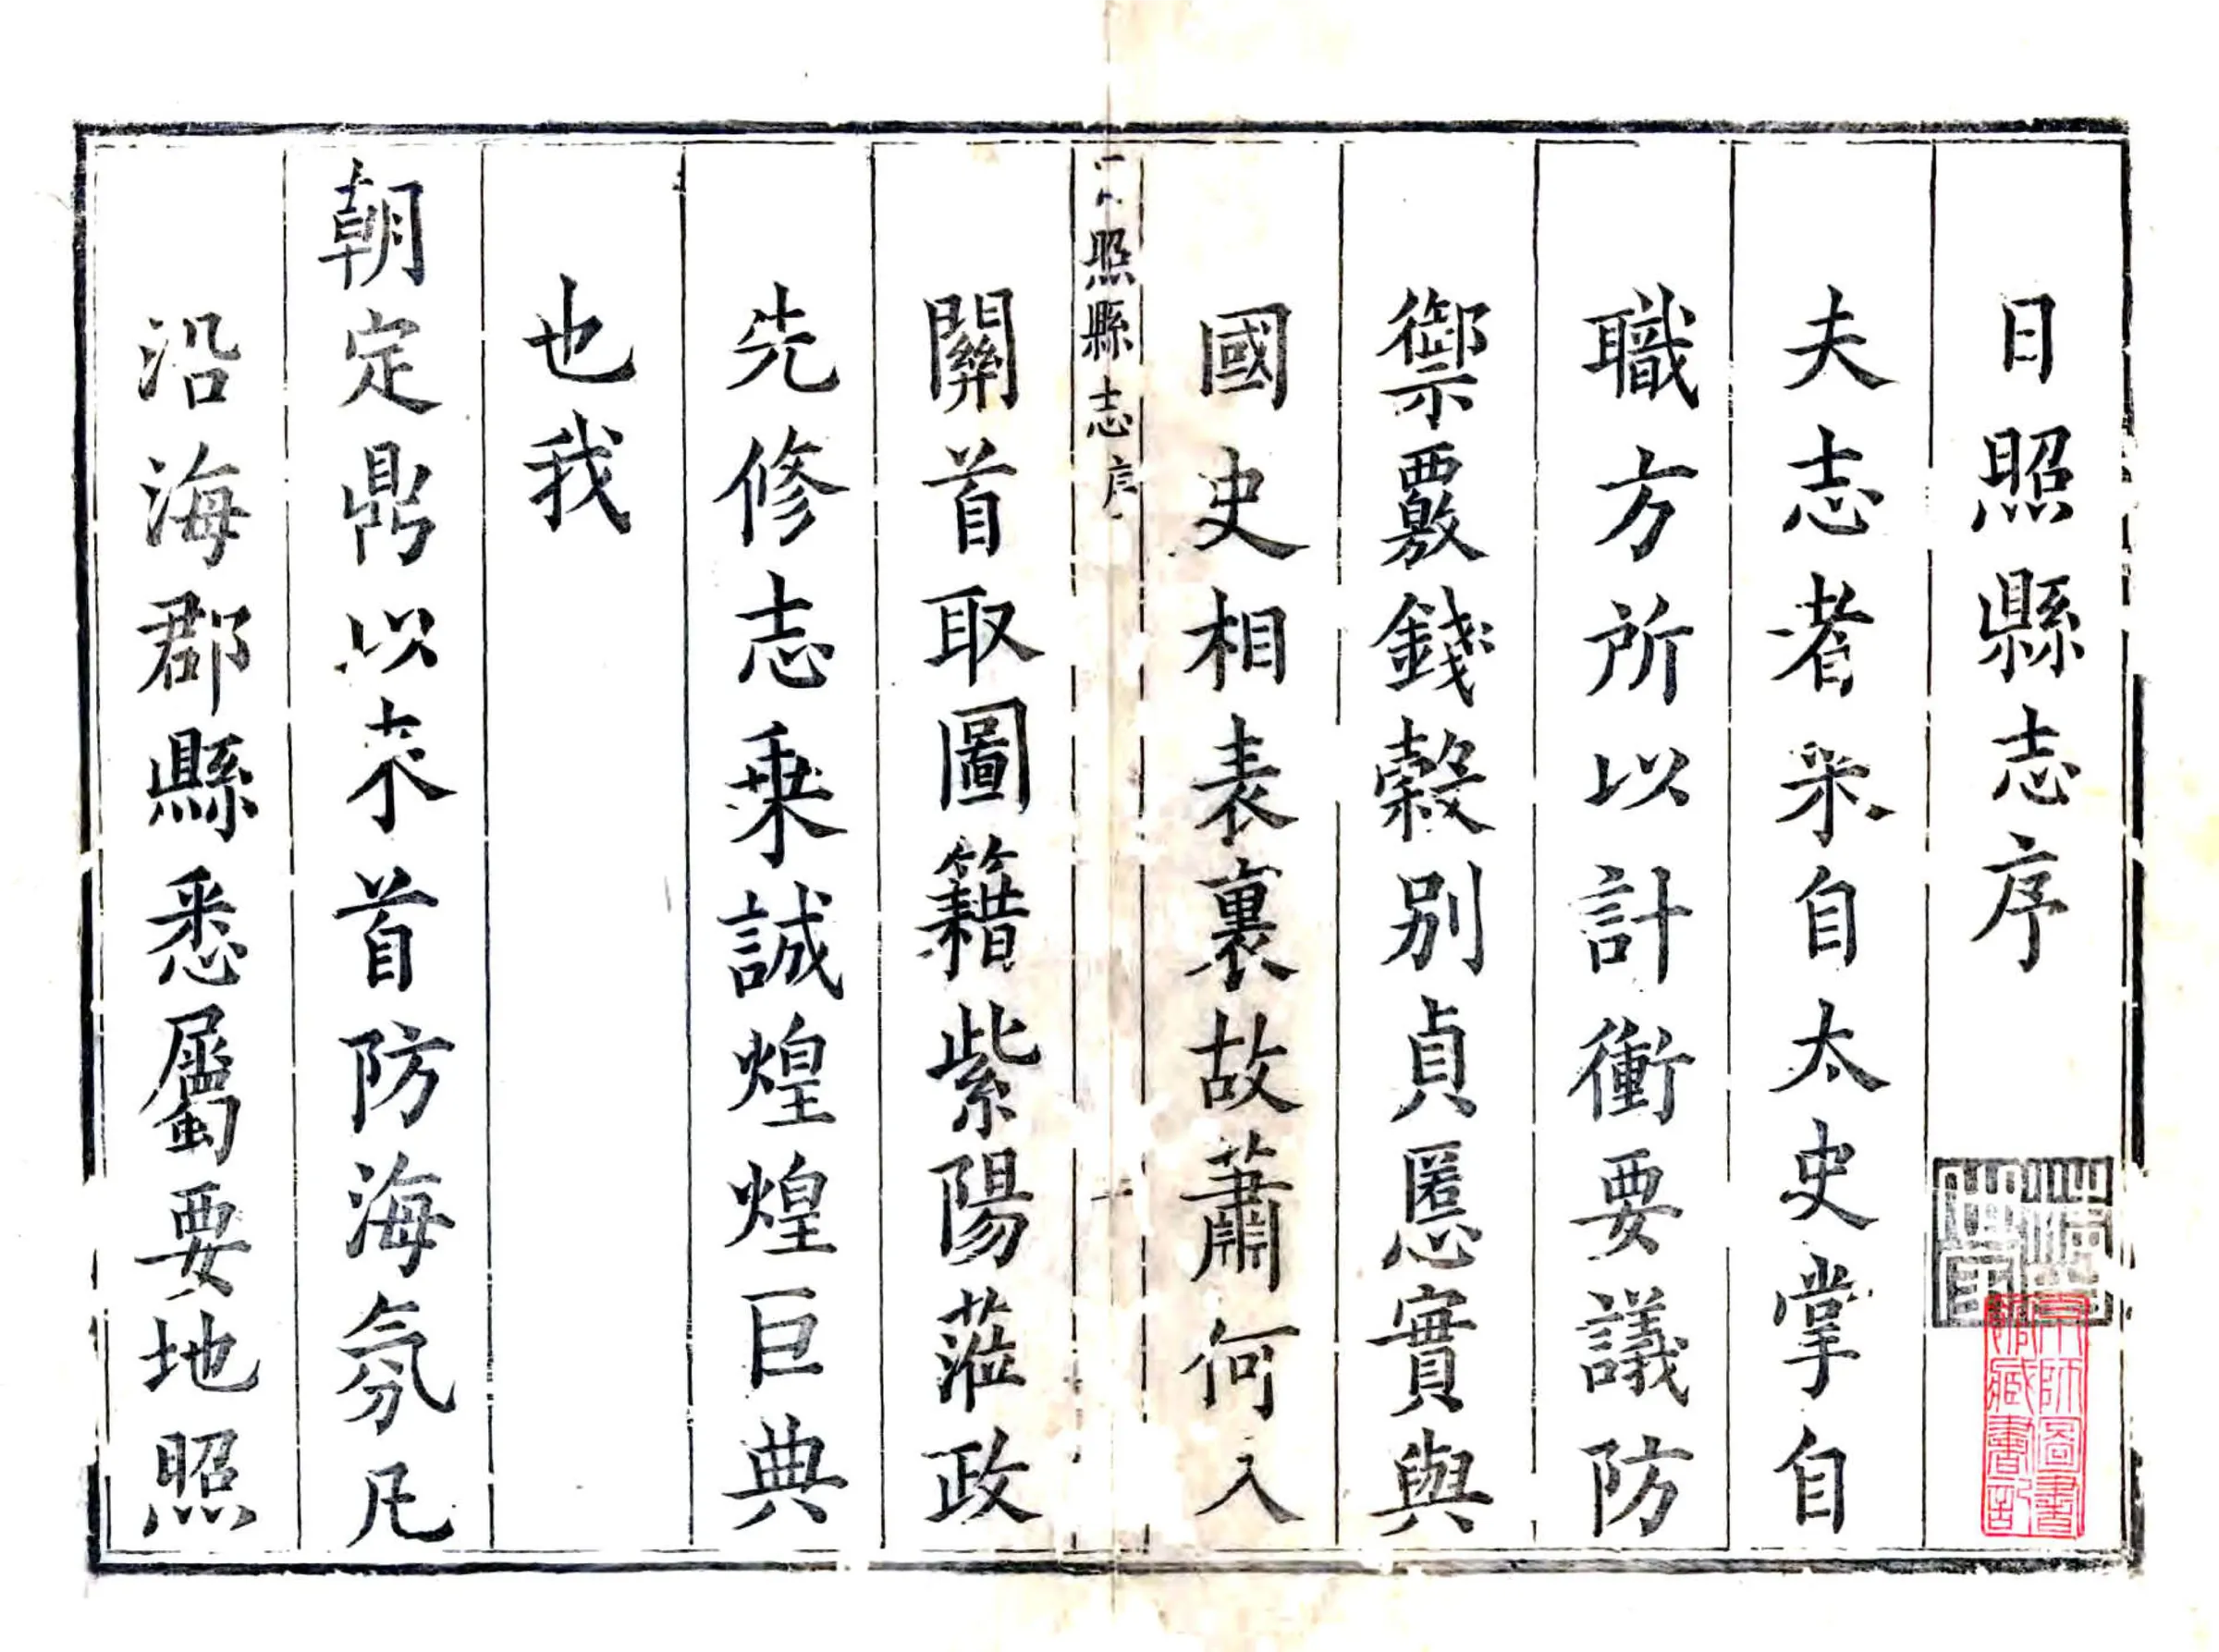 日照縣志序
夫志者采自太史掌自
職方所以計衝要議防
禦覈錢穀别貞慝實與
國史相表裏故蕭何入
關首取圖籍紫陽蒞政
先修志乗誠煌煌巨典
也我
朝定鼎以來首防海氛凡
沿海郡縣悉屬要地照
照縣志
序
一
圖書
藏書記